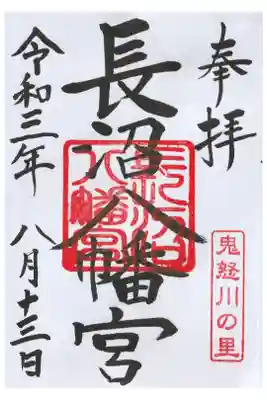 奉拝
長沼八幡宮
長沼八幡宮
鬼怒川の里
令和三年 八月十三日